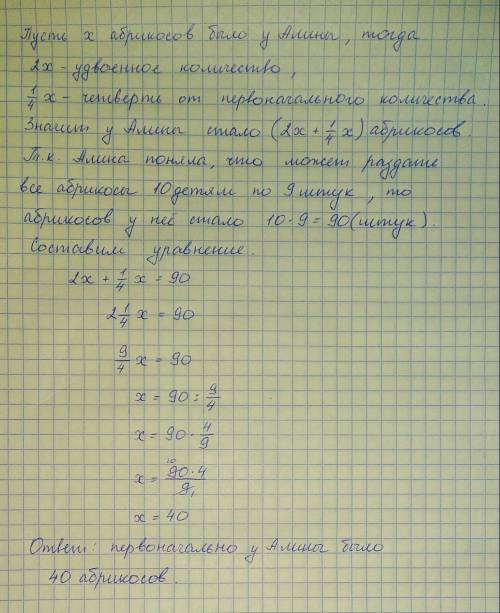 Пусть x абрикосов было у Алины, тогда
2x - удвоенное количество,
1/4 x - четверть от первоначального количества.
Значит у Алины стало (2x + 1/4 x) абрикосов.
Т.к. Алина поняла, что может раздать
все абрикосы 10 детям по 9 штук, то
абрикосов у неё стало 10·9 = 90 (штук).
Составим уравнение.
2x + 1/4 x = 90
2 1/4 x = 90
9/4 x = 90
x = 90 : 9/4
x = 90 · 4/9
x = 90·4/9
x = 40
Ответ: первоначально у Алины было
40 абрикосов.